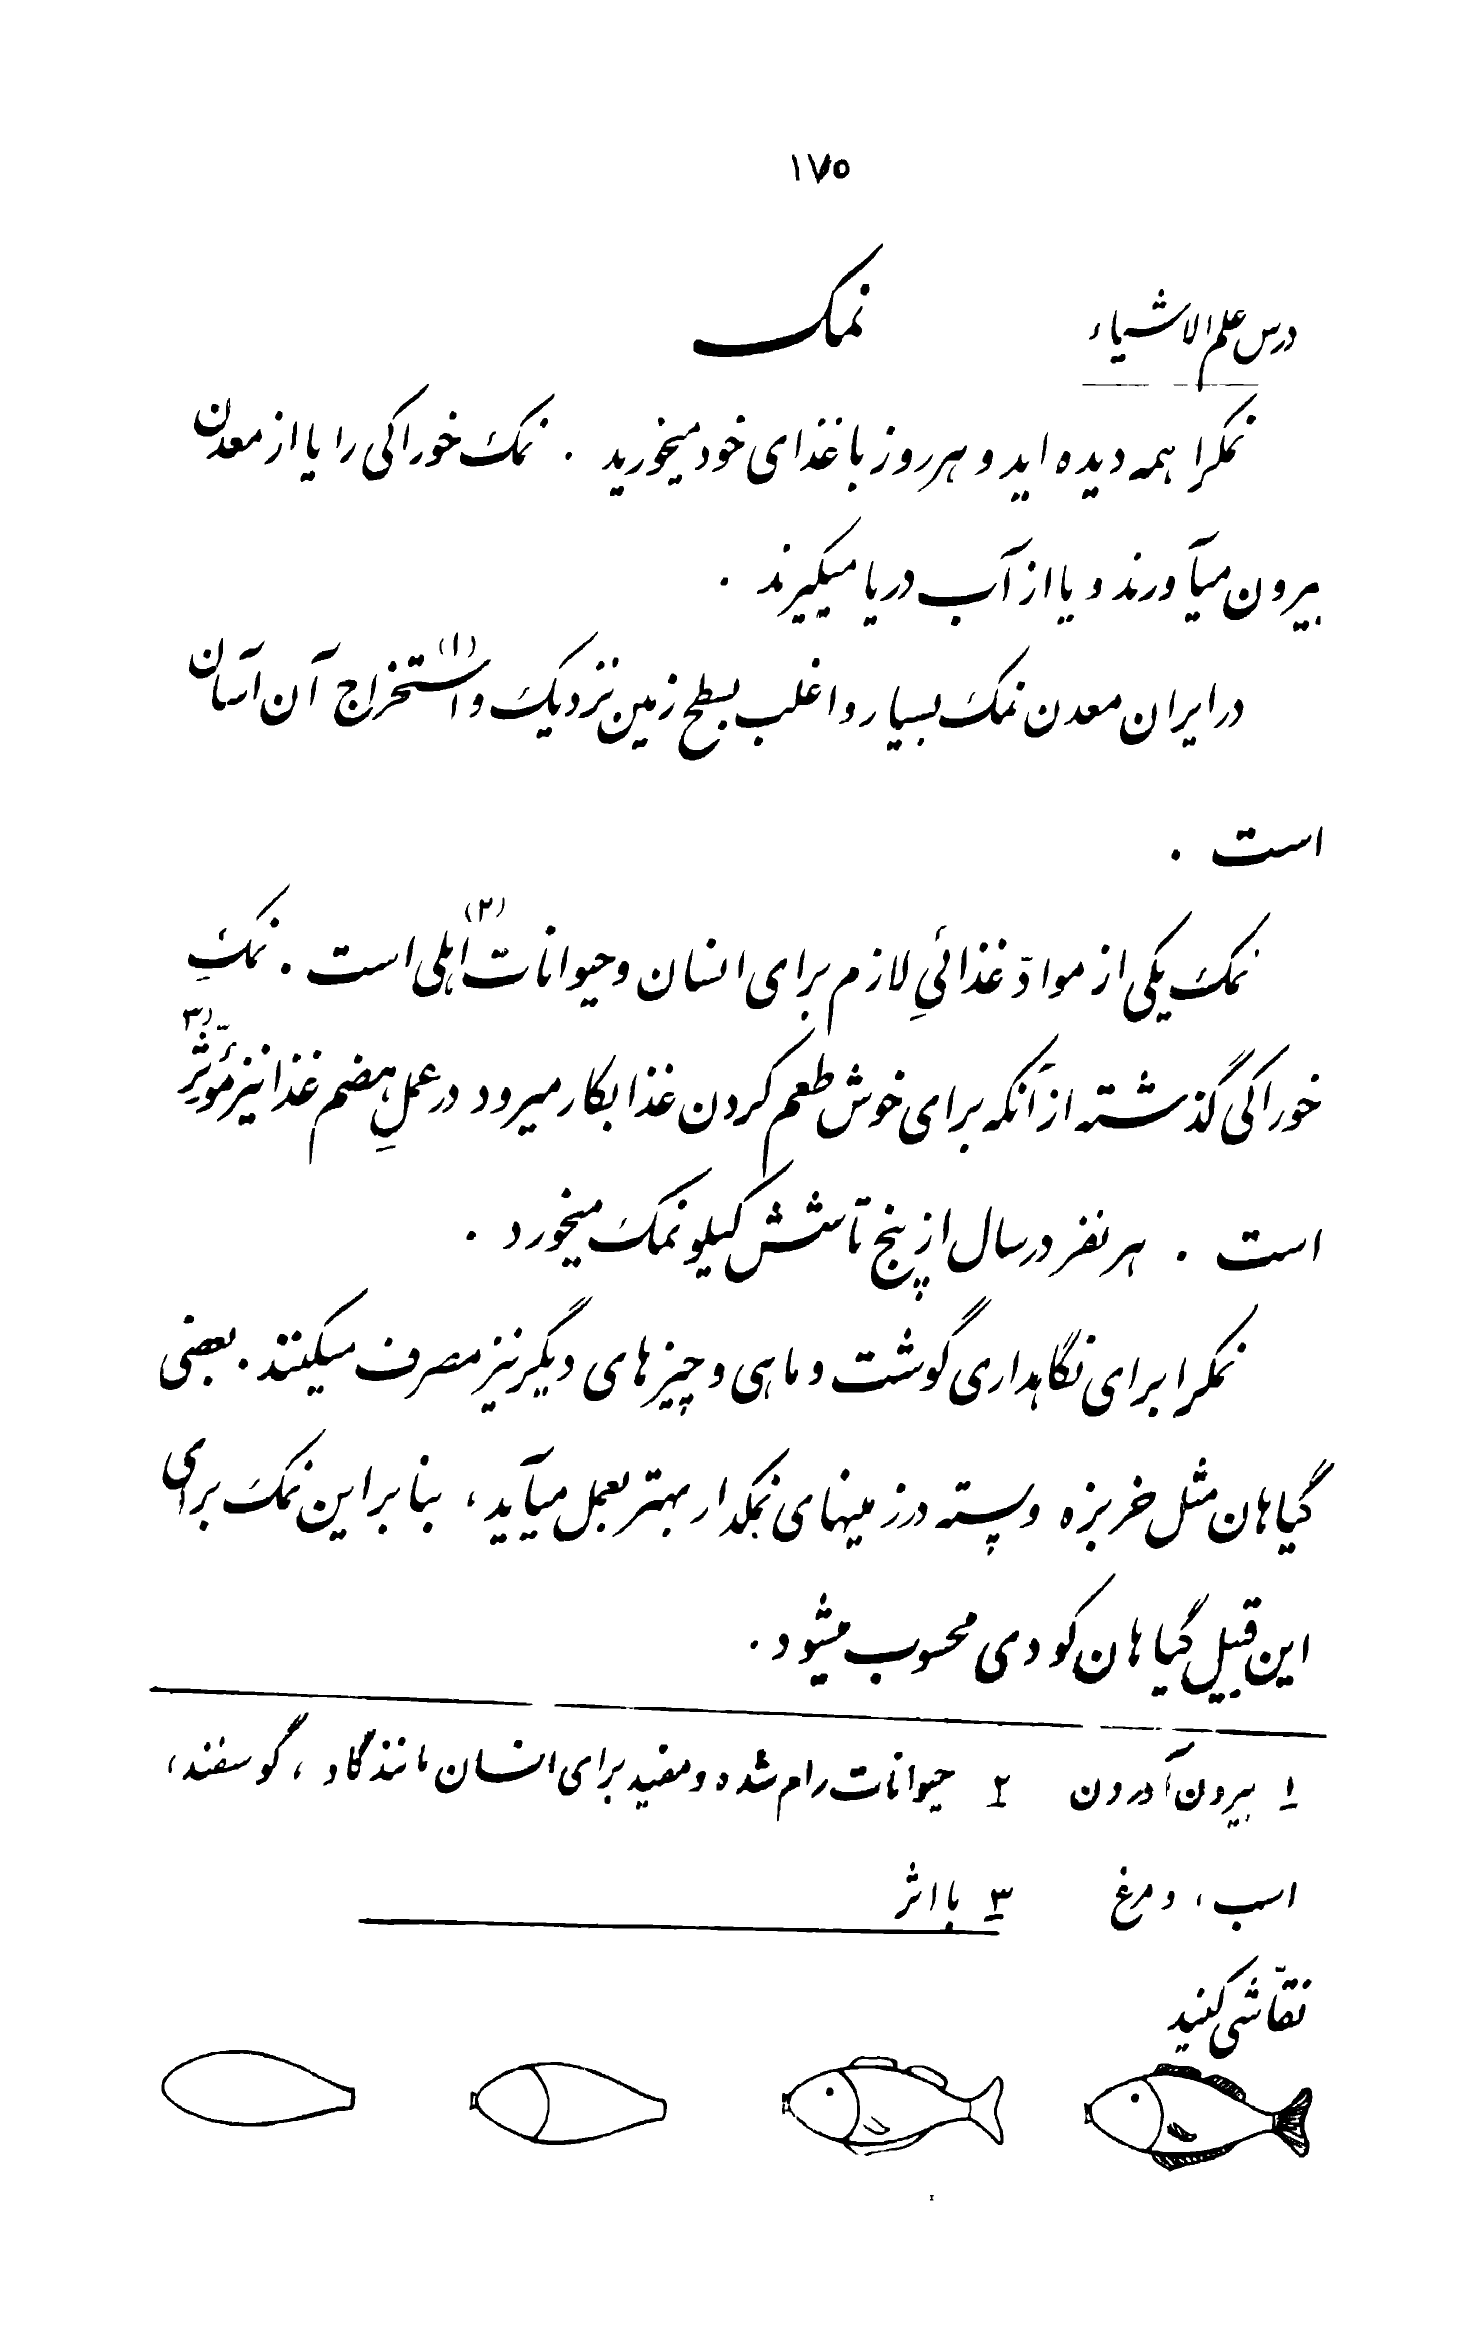 ۱۷۵
درس علم الاشیاء
نمک
نمکرا همه دیده اید و هر روز با غذای خود میخورید . نمک خوراکی را یا از معدن
بیرون میآورند و یا از آب دریا میگیرند .
در ایران معدن نمک بسیار و اغلب بسطح زمین نزدیک و استخراج (۱) آن آسان
است .
نمک یکی از موادّ غذائیِ لازم برای انسان و حیوانات اهلی (۲) است . نمکِ
خوراکی گذشته از آنکه برای خوش طعم کردن غذا بکار میرود در عملِ هضم غذا نیز مؤثّر (۳)
است . هر نفر در سال از پنج تا شش کیلو نمک میخورد .
نمکرا برای نگاهداری گوشت و ماهی و چیزهای دیگر نیز مصرف میکنند . بعضی
گیاهان مثل خربزه و پسته در زمینهای نمکدار بهتر بعمل میآید ، بنابراین نمک برای
این قبیل گیاهان کودی محسوب میشود .
۱ بیرون آوردن ۲ حیوانات رام شده و مفید برای انسان مانند گاو ، گوسفند ،
اسب ، و مرغ ۳ با اثر
نقّاشی کنید